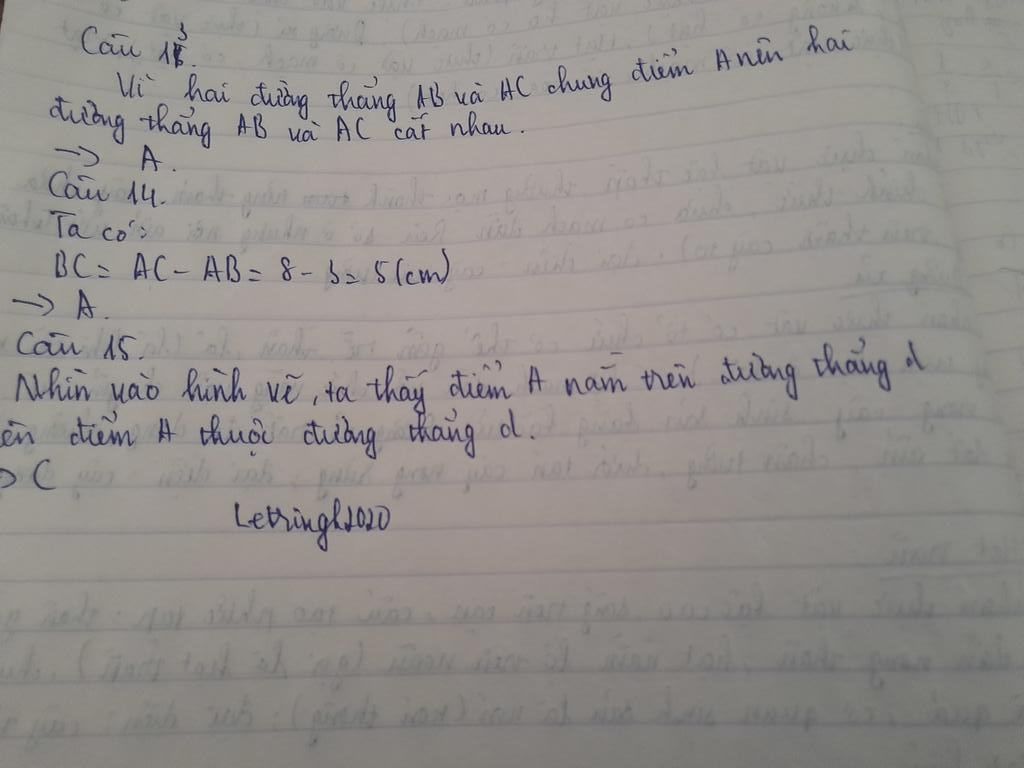 Câu 13.
Vì hai đường thẳng AB và AC chung điểm A nên hai
đường thẳng AB và AC cắt nhau.
→ A.
Câu 14.
Ta có:
BC = AC - AB = 8 - 3 = 5 (cm)
→ A.
Câu 15.
Nhìn vào hình vẽ, ta thấy điểm A nằm trên đường thẳng d
ên điểm A thuộc đường thẳng d.
→ C
Letringh2020